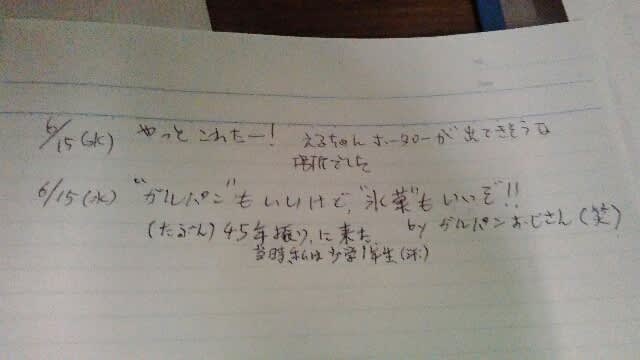 6/15(水) やっと これたー! えるちゃん ホータローが 出てきそうな
場所でした
6/15(水) "ガルパン"もいいけど、"氷菓"もいいぞ!!
(たぶん) 45年振りに来た。 by ガルパンおじさん(笑)
当時、私は少学1年生(汗)